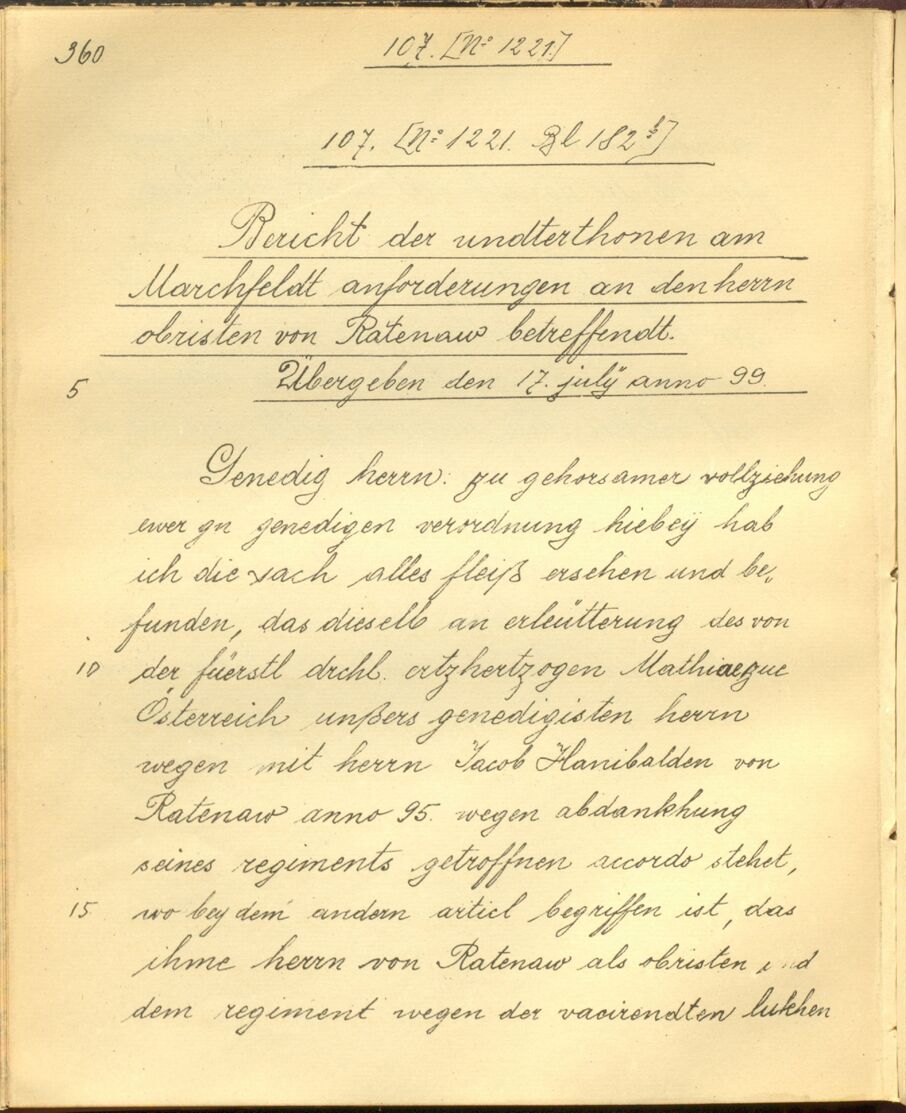 360
107. [No 1221.]
107. [No 1221. Bl 182 b]
Bericht der undterthonen am
Marchfeldt anforderungen an den herrn
obristen von Ratenaw betreffendt.
5 Übergeben den 17. julÿ anno 99.
Genedig herrn: zu gehorsamer vollziehung
ewer gn genedigen verordnung hiebeÿ hab
ich die sach alles fleiß ersehen und be„
funden, das dieselb an erleütterung des von
10 der füerstl drchl. ertzhertzogen Mathiae zue
Österreich unßers genedigisten herrn
wegen mit herrn Jacob Hanibalden von
Ratenaw anno 95. wegen abdankhung
seines regiments getroffnen accordo stehet,
15 wo bey dem andern articl begriffen ist, das
ihme herrn von Ratenaw als obristen und
dem regiment wegen der vacirendten lukhen